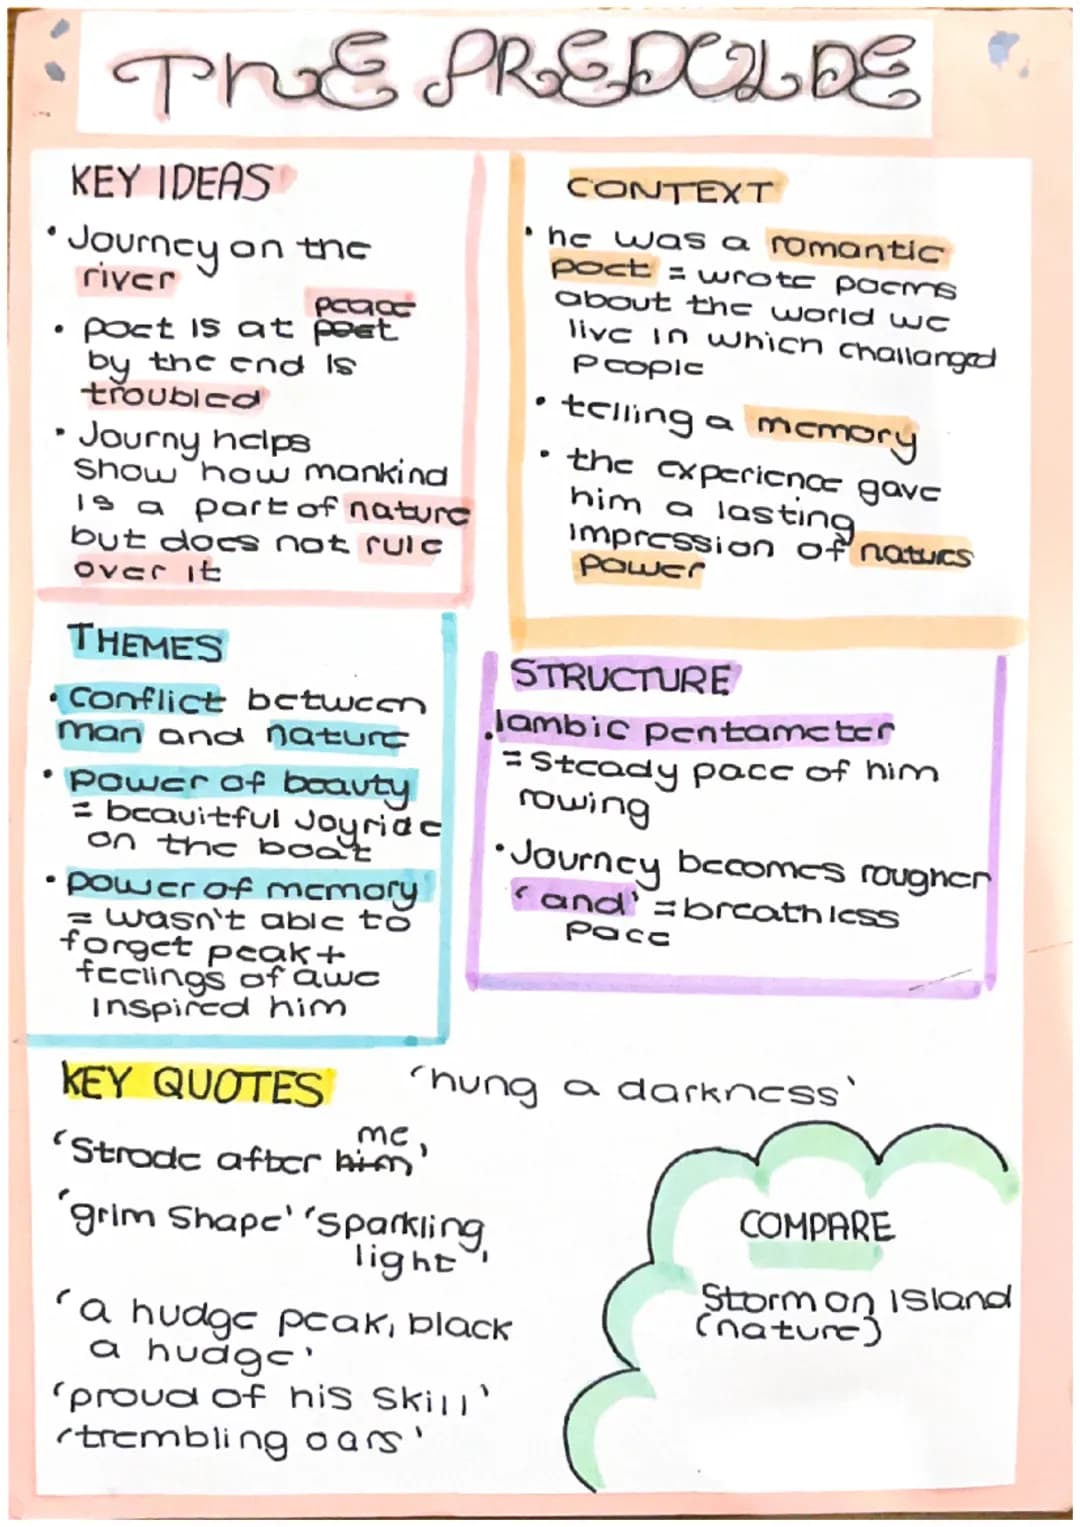 ThE PREDULDE
KEY IDEAS
• Journey on the
river
peace
• poet is at post
by the end is
troubled
• Journy helps
show how mankind
is a part of nature
but does not rule
over it
CONTEXT
• he was a romantic
poet = wrote poems
about the world we
live in which challanged
people
• telling a memory
• the experience gave
him a lasting
impression of naturs
power
THEMES
• Conflict between
man and nature
• power of beauty
= beauitful Joyride
on the boat
• power of memory
= wasn't able to
forget peak +
feelings of awe
inspired him
STRUCTURE
• Iambic pentameter
= Steady pace of him
rowing
• Journey becomes rougher
'and' = breathless
pace
KEY QUOTES
'hung a darkness'
me
'Strode after him'
'grim Shape' 'sparkling
light'
'a hudge peak, black
a hudge'
'proud of his skill'
'trembling oars'
COMPARE
Storm on Island
(nature)